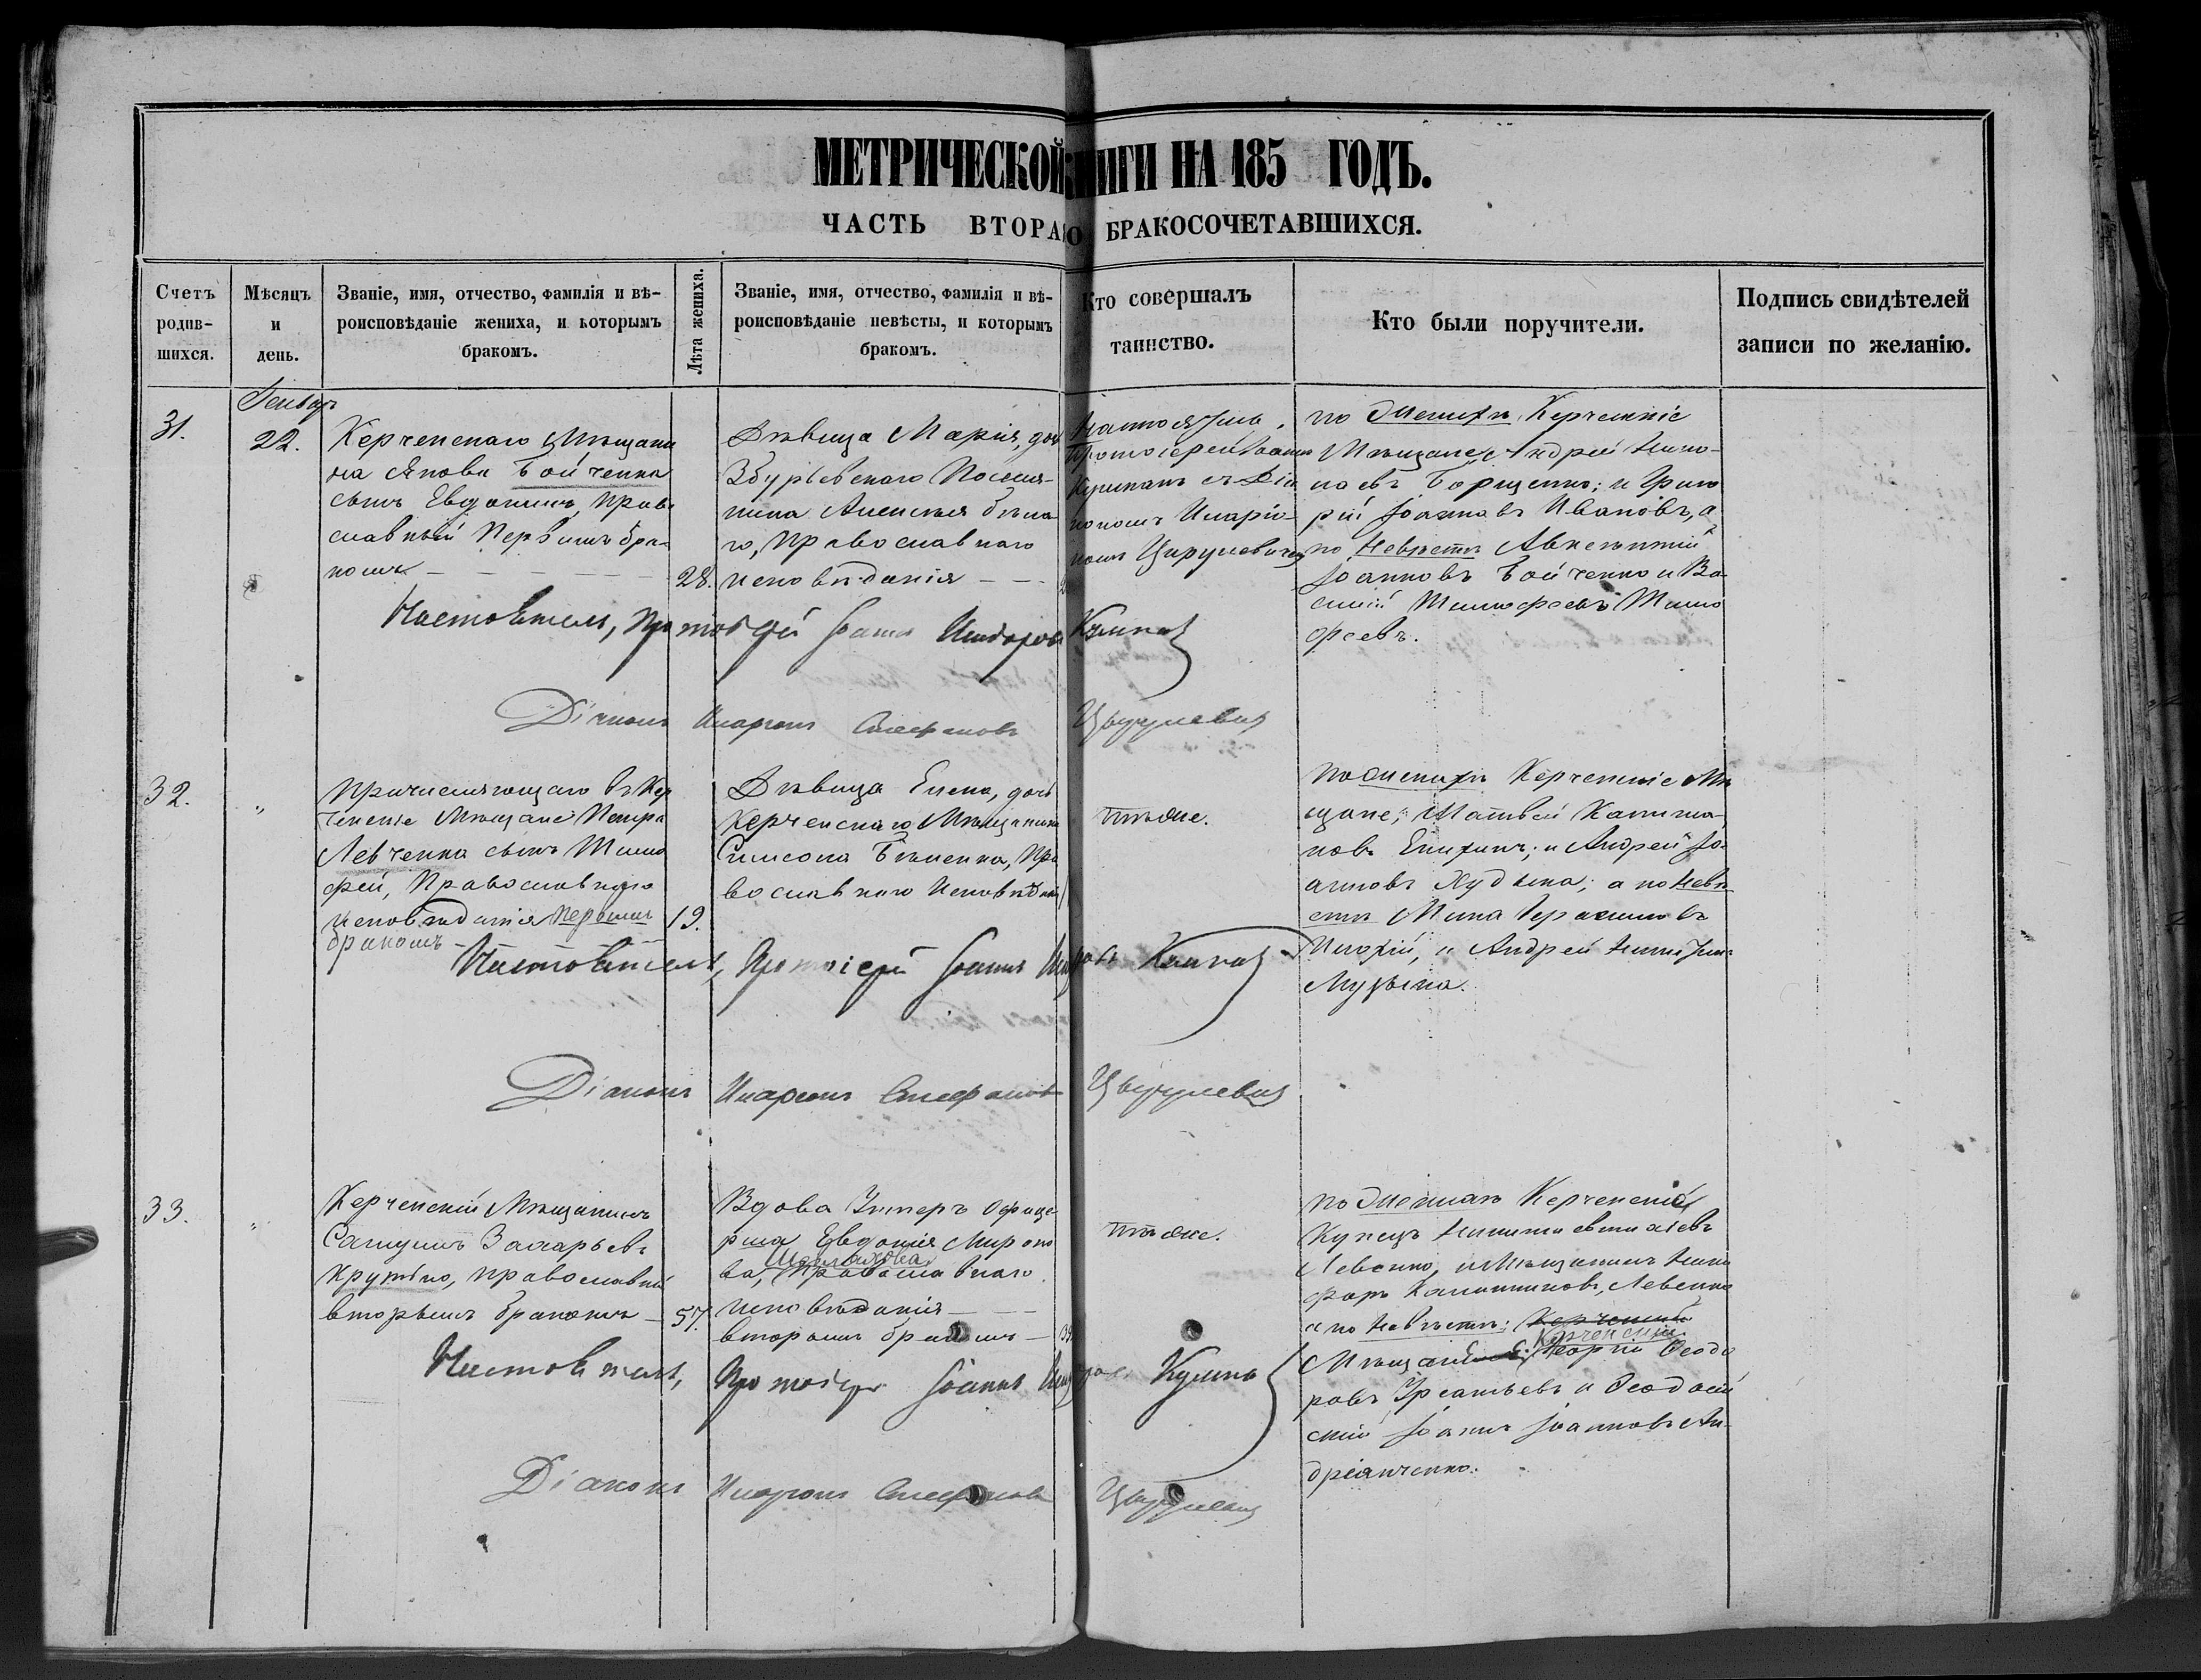 МЕТРИЧЕСКОЙ КНИГИ НА 185 ГОДЪ.
ЧАСТЬ ВТОРАЯ О БРАКОСОЧЕТАВШИХСЯ.
Счетъ родив-шихся.
Мѣсяцъ и день.
Званіе, имя, отчество, фамилія и вѣ-
роисповѣданіе жениха, и которымъ
бракомъ.
Лѣта жениха.
Званіе, имя, отчество, фамилія и вѣ-
роисповѣданіе невѣсты, и которымъ
бракомъ.
Кто совершалъ
таинство.
Кто были поручители.
Подпись свидѣтелей
записи по желанію.
31.
Генварь
22.
Керченскаго Мѣщани
на Якова Бойченка
сынъ Евдокимъ, Право
славный Первымъ бра-
комъ
28.
Дѣвица Марія, дочь
Збурьевскаго Поселя-
нина Алексѣя Бѣла
го, Православнаго
исповѣданія
Протоіерей Іоаннъ
Куликъ съ Діа
кономъ Иларіо
номъ Цвѣрулевичемъ
по Женихѣ Керченскіе
Мѣщане Андрей Нико-
лаевъ Борщенко; и Григо
рій Іоанновъ Ивановъ, а
по Невѣстѣ
Іоанновъ Бойченко и Ва
силій Тимофеевъ Тимо
феевъ.
Настоятель, Протоіерей Іоаннъ Исидоровъ Куликъ
Діаконъ Иларіонъ Стефановъ
32.
"
Причисляющаго въ Кер
ченскіе Мѣщане Петра
Левченка сынъ Тимо
фей, Православнаго
исповѣданія Первымъ
бракомъ
19.
Дѣвица Елена, дочь
Керченскаго Мѣщанина
Симеона Бѣленка, Пра
вославнаго Исповѣданія
тѣже.
по Женихѣ Керченскіе Мѣ
щане; Матвей
Андрей Іо-
анновъ Худына; а по Невѣ
стѣ Мина Герасимовъ
и Андрей
Музыка.
Настоятель, Протоіерей Іоаннъ Исидоровъ Куликъ
Діаконъ Иларіонъ Стефановъ
33.
"
Керченскій Мѣщанинъ
Самуилъ Захарьевъ
Крутько, православный
вторымъ бракомъ
57.
Вдова Унтеръ офице-
рша Евдокія Мироно
ва, Православнаго
исповѣданія
вторымъ бракомъ
тѣже.
по Женихѣ Керченскій
Купецъ
Левенко, и Мѣщанинъ Ники
форъ Калинниковъ Левенко
а по Невѣстѣ: Керченскій
Керченскій
Мѣщанинъ Георгій Феодо
ровъ и Феодосій
скій Іоаннъ Іоанновъ Ан-
дріянченко.
Настоятель, Протоіерей Іоаннъ Исидоровъ Куликъ
Діаконъ Иларіонъ Стефановъ